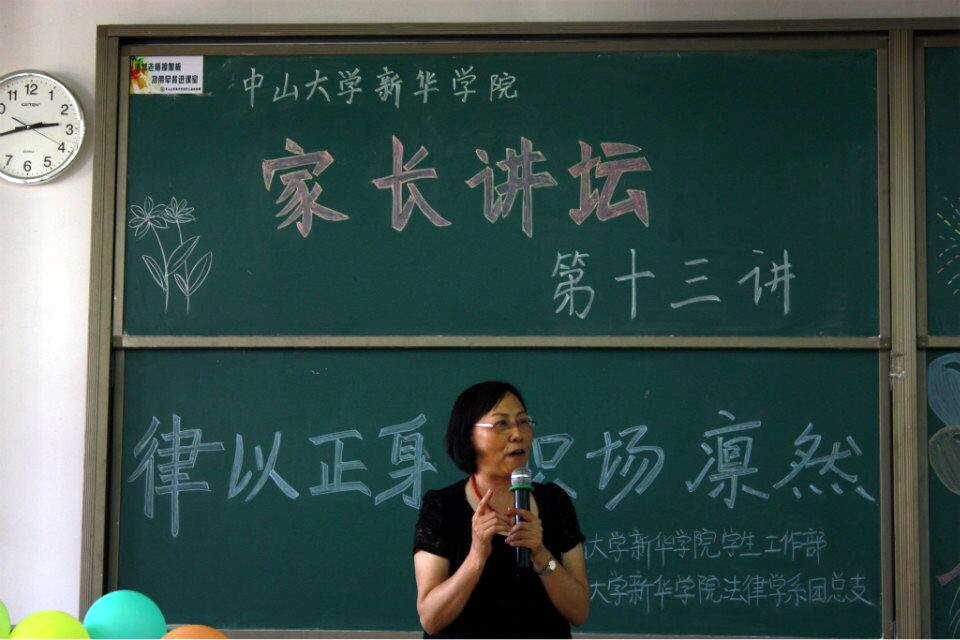 中山大学新华学院
家长讲坛
第十三讲
律以正身 职场凛然
大学新华学院学生工作部
大学新华学院法律学系团总支
11 12 1 2 3 4 5 6 7